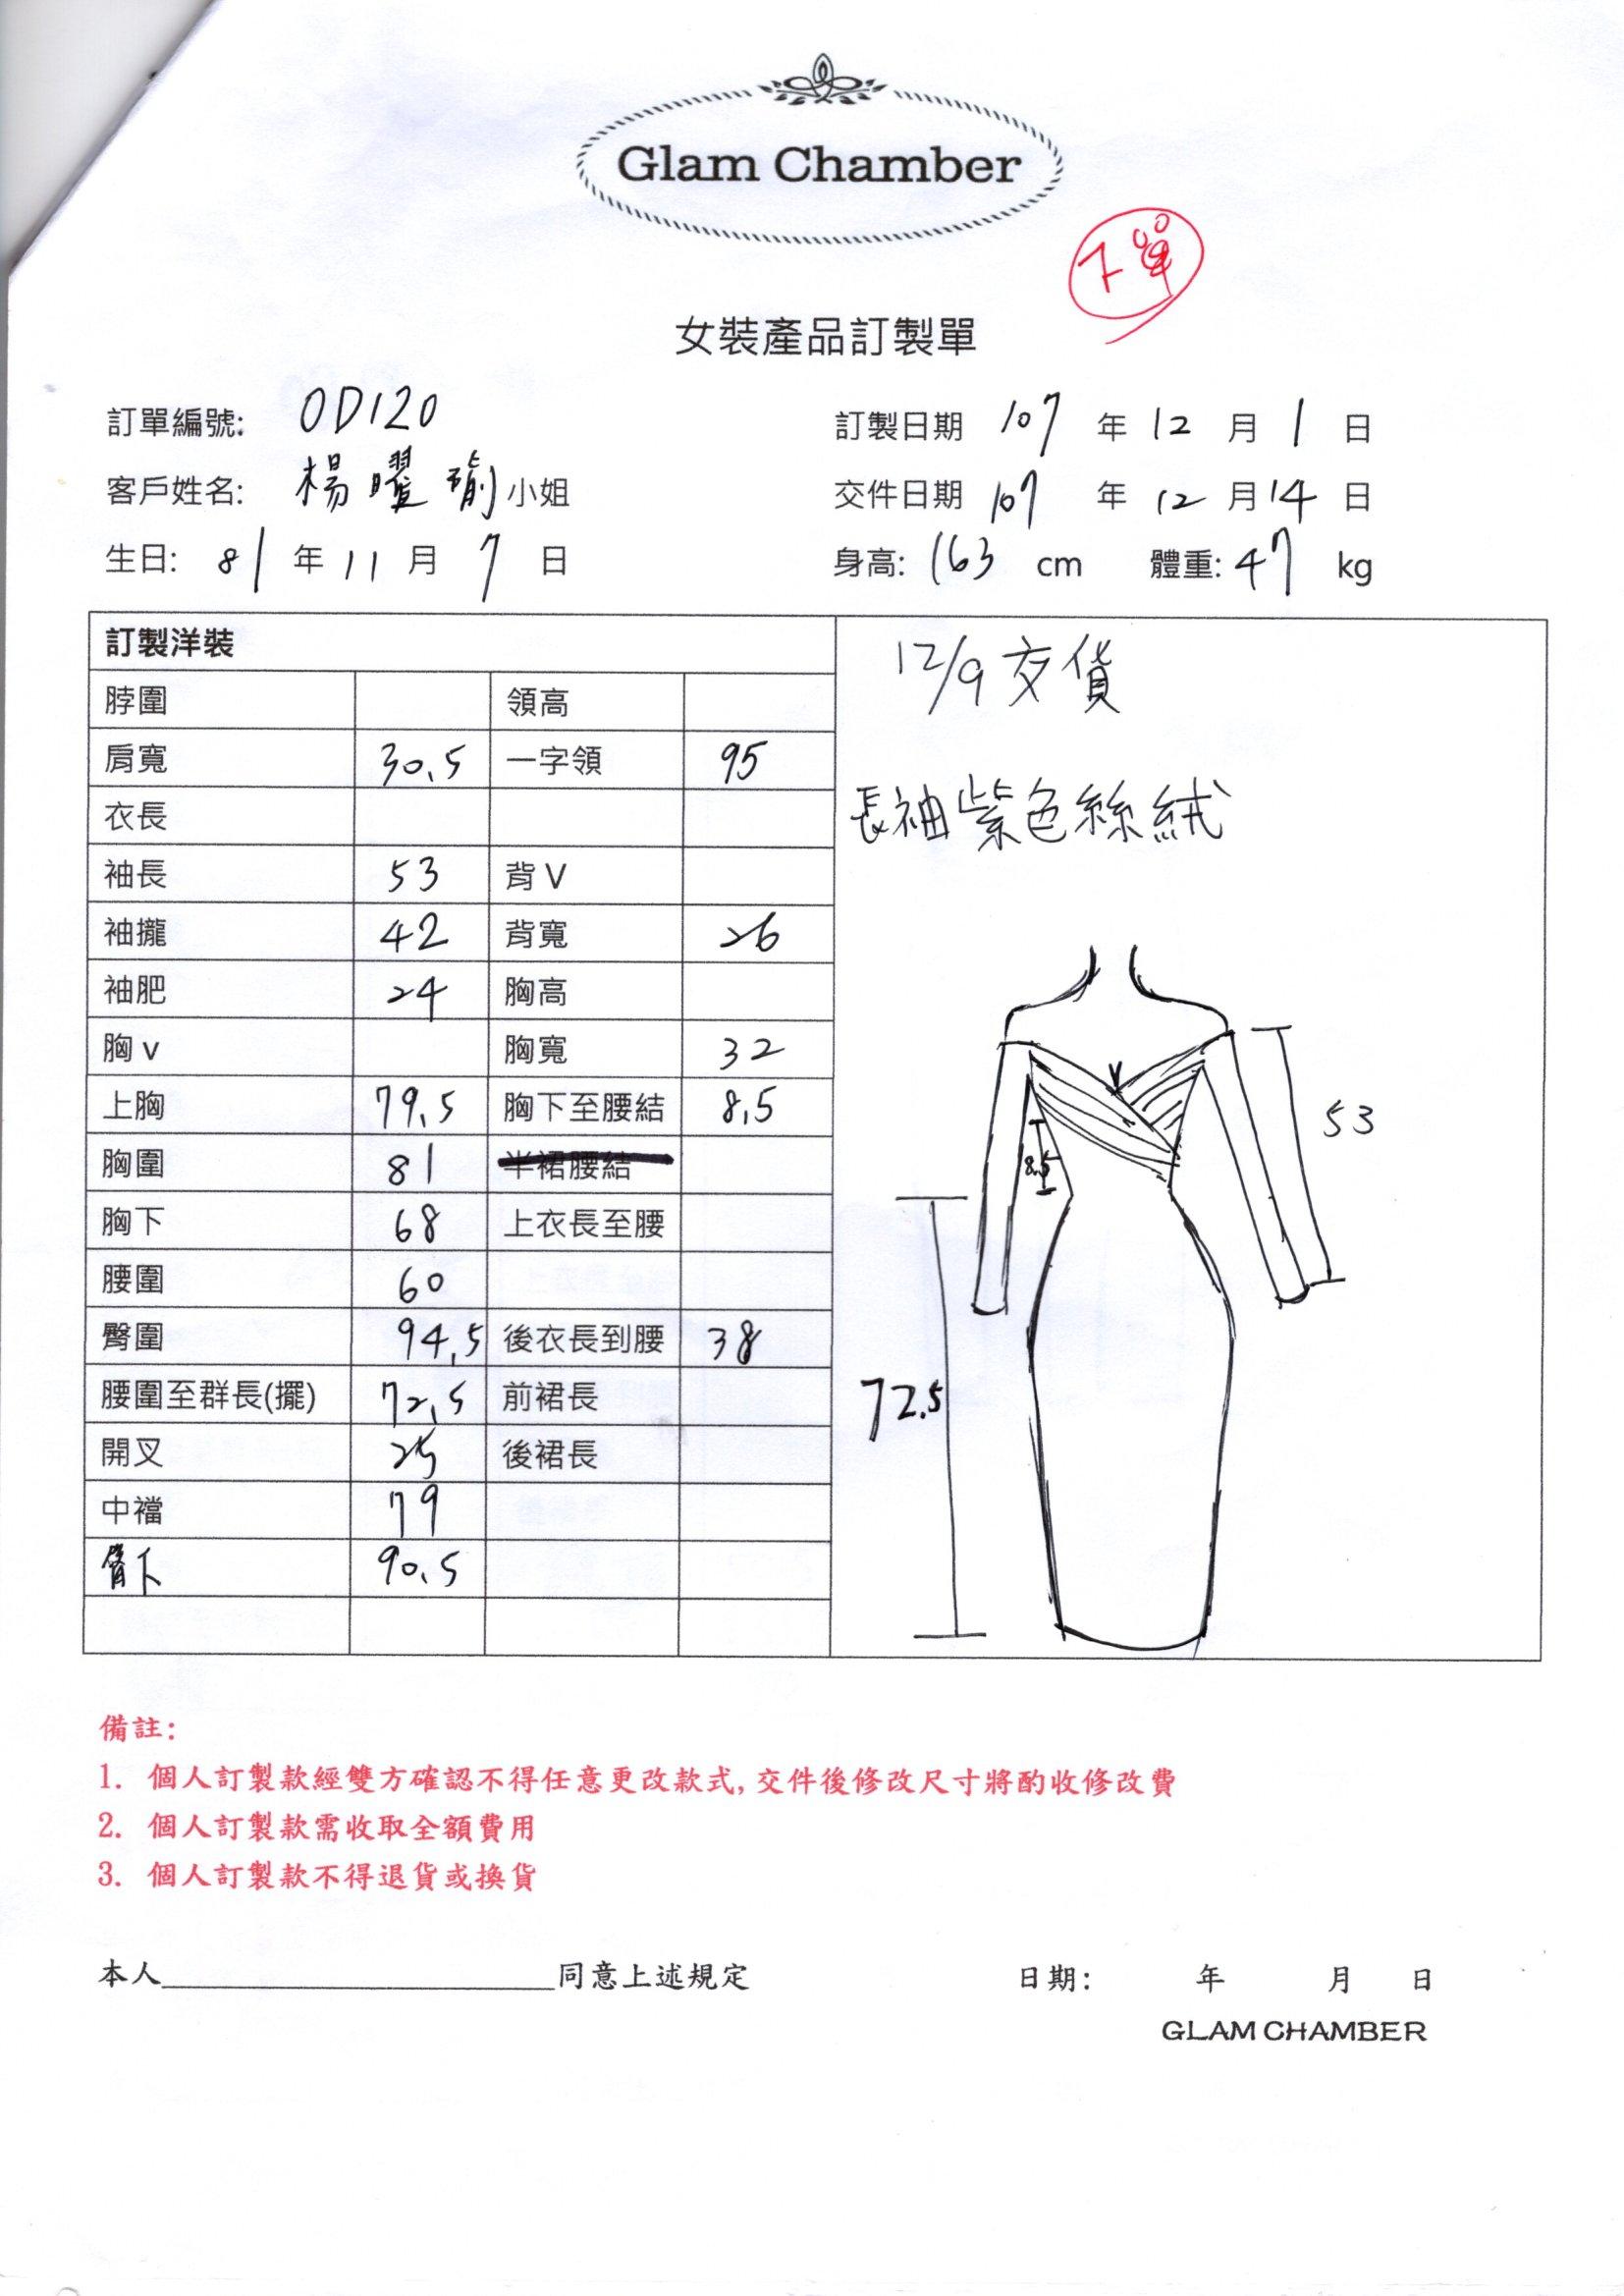 Glam Chamber
下單
女裝產品訂製單
訂單編號: OD120
訂製日期 107 年 12 月 1 日
客戶姓名: 楊曜瑜小姐
交件日期 107 年 12 月 14 日
生日: 81 年 11 月 7 日
身高: 163 cm 體重: 47 kg
訂製洋裝
脖圍 領高
肩寬 30.5 一字領 95
衣長
袖長 53 背V
袖攏 42 背寬 26
袖肥 24 胸高
胸v 胸寬 32
上胸 79.5 胸下至腰結 8.5
胸圍 81 半裙腰結
胸下 68 上衣長至腰
腰圍 60
臀圍 94.5 後衣長到腰 38
腰圍至群長(擺) 72.5 前裙長
開叉 25 後裙長
中襠 79
90.5
12/9交貨
長袖紫色絲絨
V
53
8.5
72.5
備註:
1. 個人訂製款經雙方確認不得任意更改款式,交件後修改尺寸將酌收修改費
2. 個人訂製款需收取全額費用
3. 個人訂製款不得退貨或換貨
本人____________________同意上述規定
日期: 年 月 日
GLAM CHAMBER